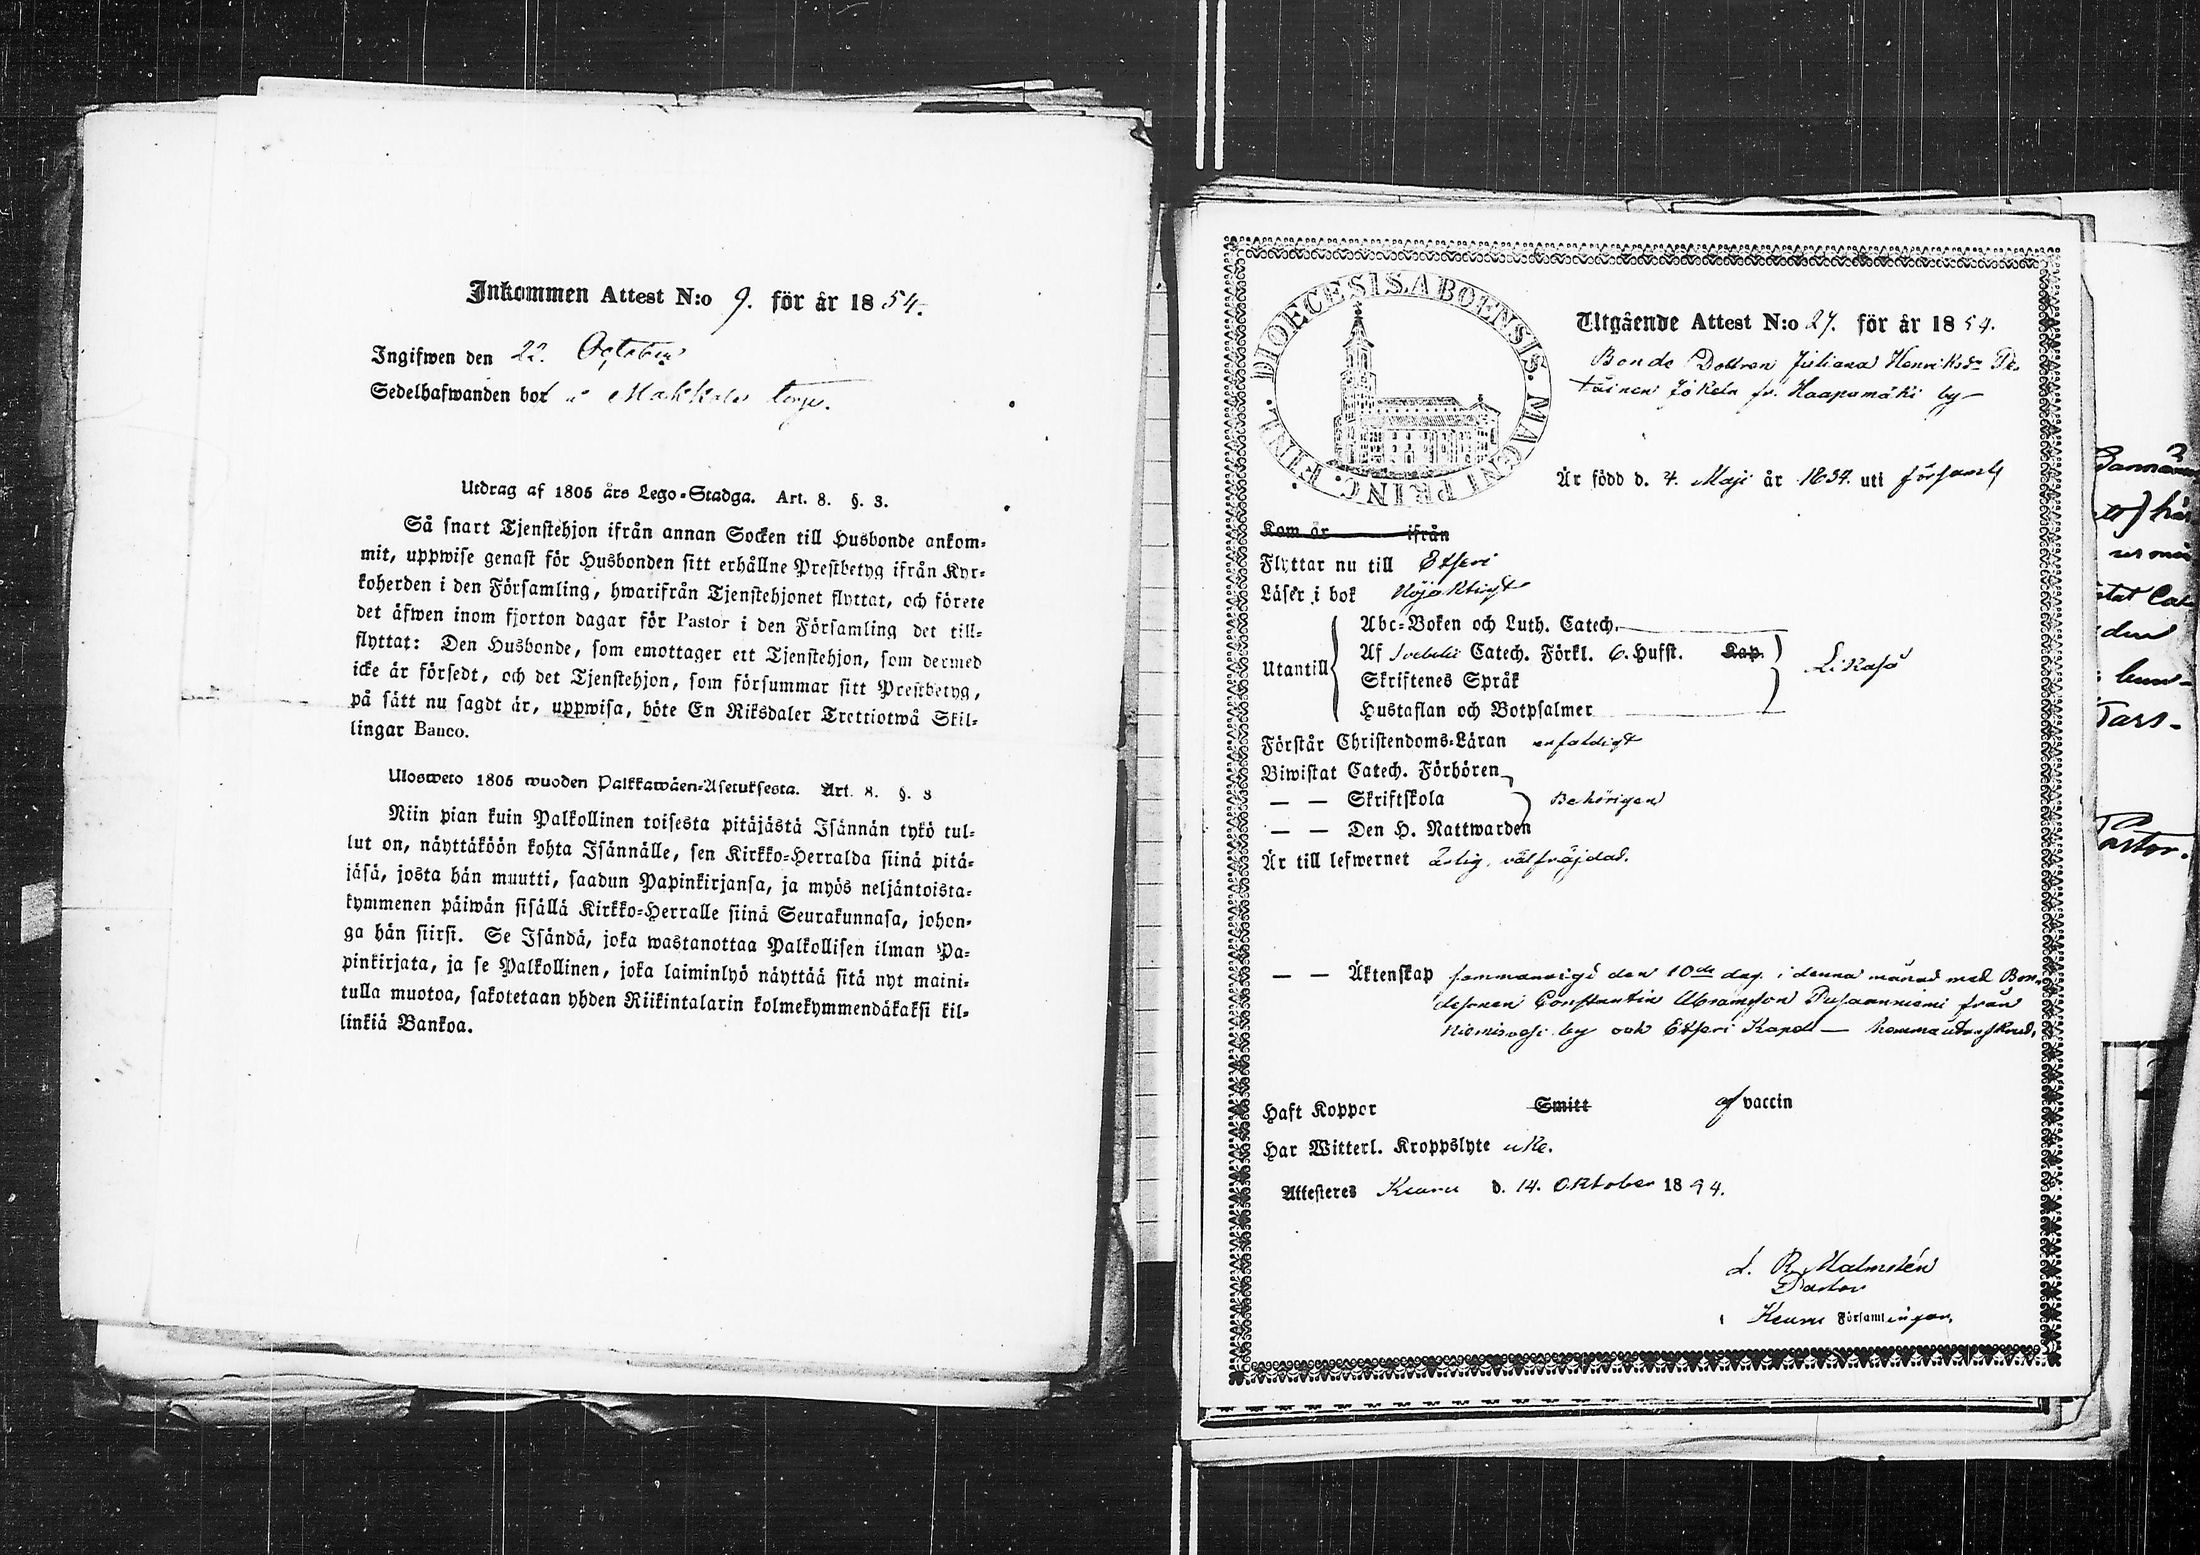 Inkommen Attest N:o 9. för år 1854.
Ingifwen den 22. October
Sedelhafwanden bor
Utdrag af 1805 års Lego-Stadga. Art. 8. §. 3.
Så snart Tjenstehjon ifrån annan Socken till Husbonde ankom-
mit, uppwise genast för Husbonden sitt erhållne Prestbetyg ifrån Kyr-
koherden i den Församling, hwarifrån Tjenstehjonet flyttat, och förete
det äfwen inom fjorton dagar för Pastor i den Församling det till-
flyttat: Den Husbonde, som emottager ett Tjenstehjon, som dermed
icke är försedt, och det Tjenstehjon, som försummar sitt Prestbetyg,
på sätt nu sagdt är, uppwisa, böte En Riksdaler Trettiotwå Skil-
lingar Banco.
Ulosweto 1805 wuoden Palkkawäen-Asetuksesta. Art. 8. §. 3
Niin pian kuin Palkollinen toisesta pitäjästä Isännän tykö tul-
lut on, näyttäköön kohta Isännälle, sen Kirkko-Herralda siinä pitä-
jäsä, josta hän muutti, saadun Papinkirjansa, ja myös neljäntoista-
kymmenen päiwän sisällä Kirkko-Herralle siinä Seurakunnasa, johon-
ga hän siirsi. Se Isändä, joka wastanottaa Palkollisen ilman Pa-
pinkirjata, ja se Palkollinen, joka laiminlyö näyttää sitä nyt maini-
tulla muotoa, sakotetaan yhden Riikintalarin kolmekymmendäkaksi kil-
linkiä Bankoa.
DIOECESIS. ABOENSIS. MAGNI PRINC. FINL.
Utgående Attest N:o 27. för år 1854.
Bonde Dottren Juliana Henriksdr
fr. Haapamäki by
Är född d. 4. Maji år 1834. uti församl
Kom år ifrån
Flyttar nu till Etseri
Läser i bok Nöjaktigt
Utantill
Abc-Boken och Luth. Catech.
Af Svebelii Catech. Förkl. 6. Hufst. Kap.
Skriftenes Språk
Hustaflan och Botpsalmer
Likaså
Förstår Christendoms-Läran enfaldigt
Biwistat Catech. Förhören
— — Skriftskola
— — Den H. Nattwarden
Behörigen
Är till lefwernet ärlig, välfräjdad.
— — Äktenskap sammanvigd den 10de dag. i denna månad med Bon-
desonen Constantin Abramsson från
Niemisvesi by och Etseri Kapell —
Haft Koppor Smitt af vaccin
Har Witterl. Kroppslyte icke.
Attesteres Keuru d. 14. Oktober 1854.
L. R. Malmstén
Pastor
i Keuru Församlingen.